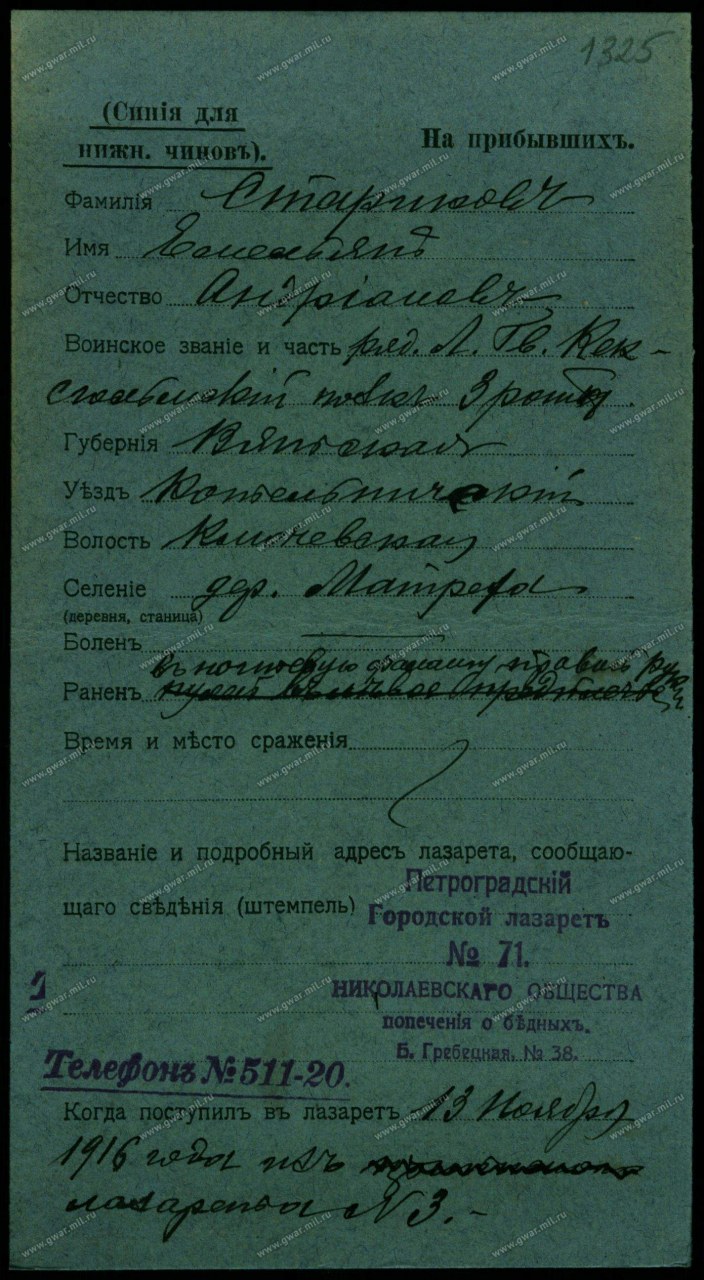 1325
(Синія для
нижн. чиновъ).
На прибывшихъ.
Фамилія Стариковъ
Имя Емельянъ
Отчество Андріановъ
Воинское званіе и часть ряд. Л. Гв. Кек-
сгольмскій полкъ 3 роты.
Губернія Вятская
Уѣздъ Котельническій
Волость Ключевская
Селеніе дер.
(деревня, станица)
Боленъ
въ ногтевую фалангу правой руки.
Раненъ пулей въ лѣвое предплечье
Время и мѣсто сраженія
Названіе и подробный адресъ лазарета, сообщаю-
щаго свѣдѣнія (штемпель)
Петроградскій
Городской лазаретъ
№ 71.
НИКОЛАЕВСКАГО ОБЩЕСТВА
попеченія о бѣдныхъ.
Б. Гребецкая, № 38.
Телефонъ № 511-20.
Когда поступилъ въ лазаретъ 13 Ноября
1916 года изъ
лазарета № 3.-
www.gwar.mil.ru